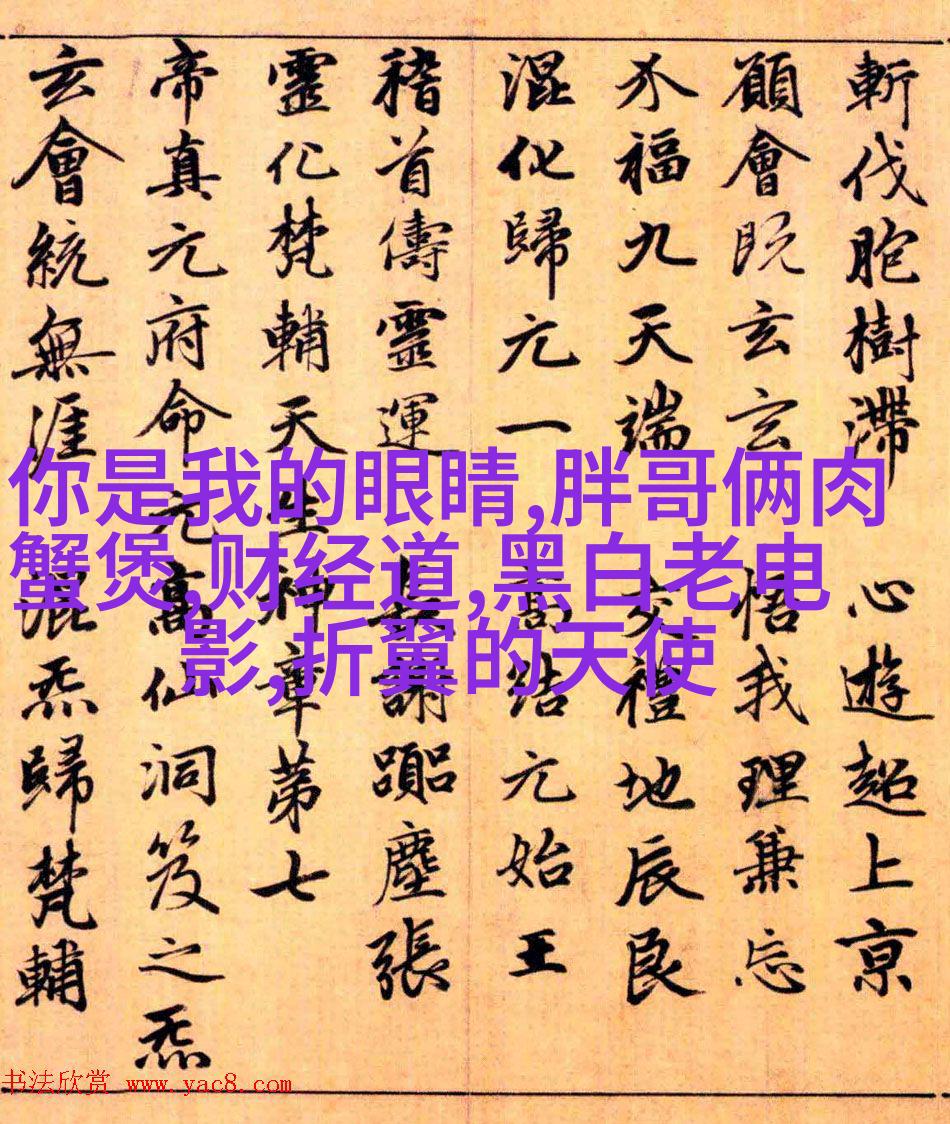 斬伐胞樹滯 心遊超上京
願會既玄玄 悟我理兼忘
介福九天端 交禮地辰良
混化歸元一 高結元始王
稽首儔靈運 長謝塵張
靈化梵輔天生神章第七
帝真元府命元高仙洞笈之炁
玄會統無涯混炁歸梵輔
你是我的眼睛,胖哥俩肉
蟹煲,财经道,黑白老电
影,折翼的天使
书法欣赏 www.yac8.com